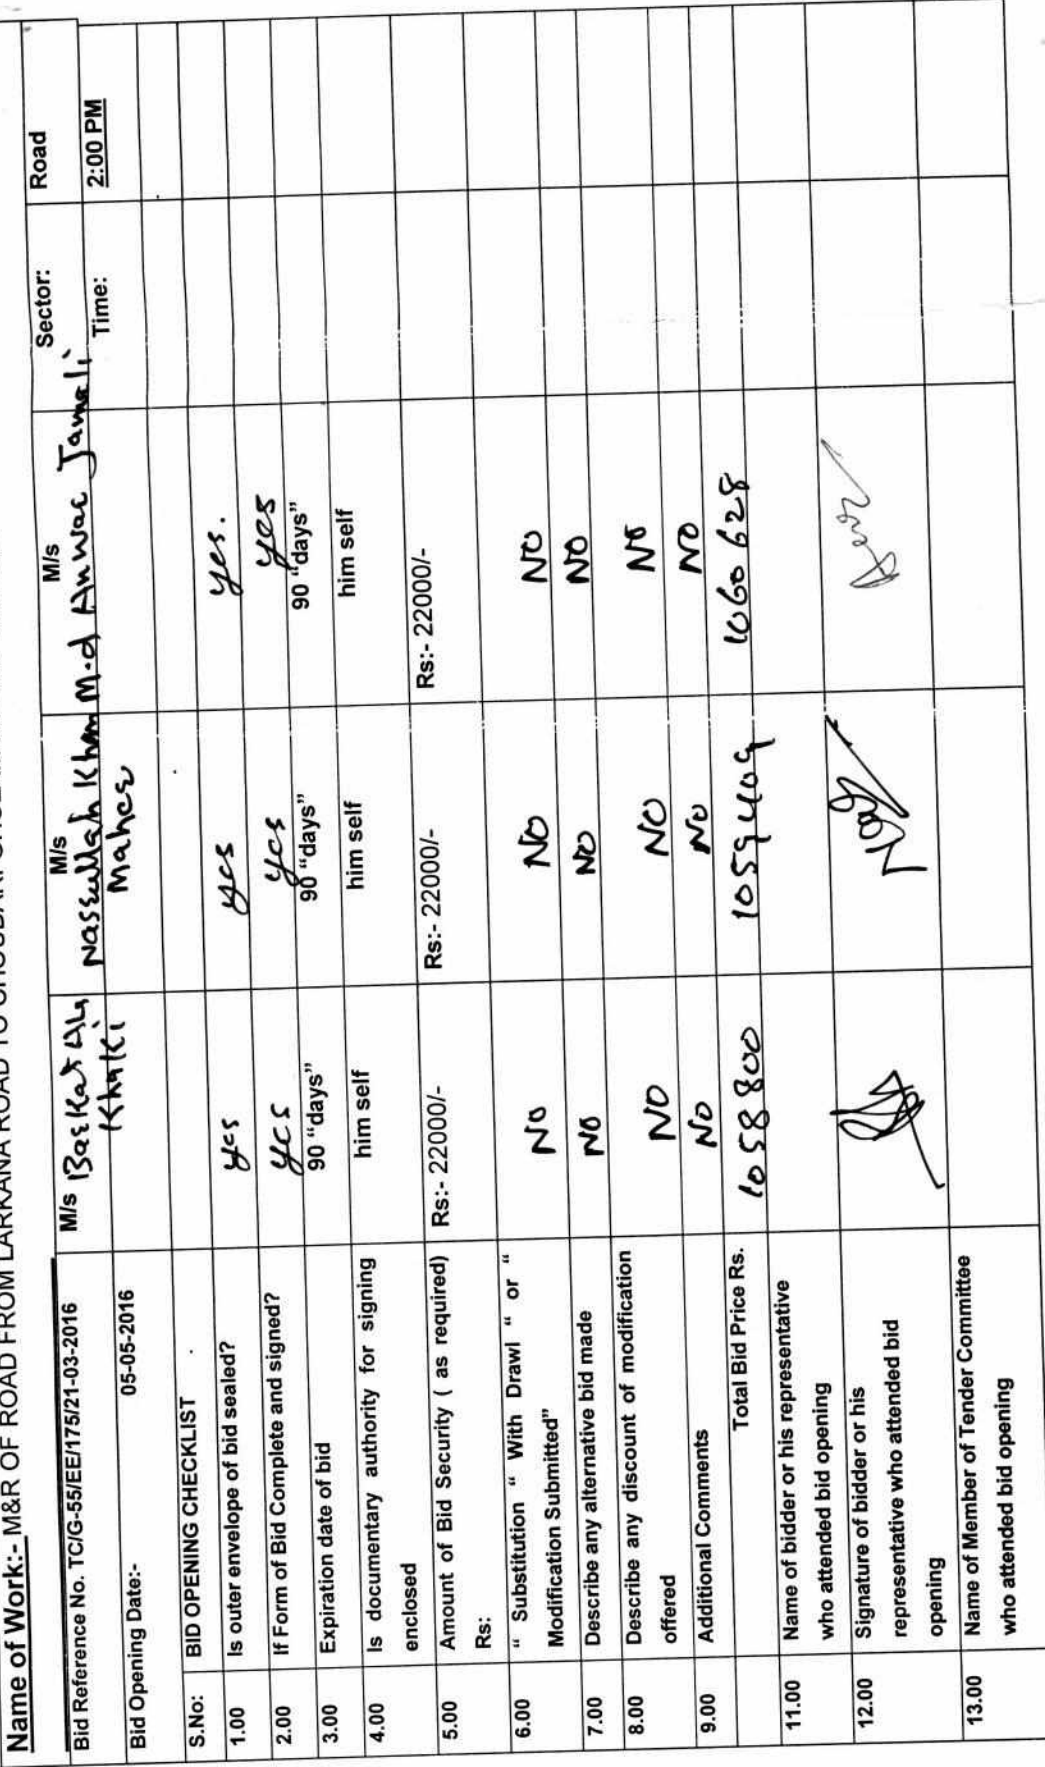 Name of Work:- M&R OF ROAD FROM LARKANA ROAD TO
Bid Reference No. TC/G-55/EE/175/21-03-2016 M/s Barkat Ali Khaki M/s Nasrullah Khan Maher M/s M.d Anwar Jamali Sector: Road
Bid Opening Date:- 05-05-2016 Time: 2:00 PM
S.No: BID OPENING CHECKLIST
1.00 Is outer envelope of bid sealed? yes yes yes.
2.00 If Form of Bid Complete and signed? yes yes yes
3.00 Expiration date of bid 90 “days” 90 “days” 90 “days”
4.00 Is documentary authority for signing enclosed him self him self him self
5.00 Amount of Bid Security ( as required) Rs: Rs:- 22000/- Rs:- 22000/- Rs:- 22000/-
6.00 “ Substitution “ With Drawl “ or “ Modification Submitted” NO NO NO
7.00 Describe any alternative bid made NO NO NO
8.00 Describe any discount of modification offered NO NO NO
9.00 Additional Comments NO NO NO
Total Bid Price Rs. 1058800 1059409 1060628
11.00 Name of bidder or his representative
who attended bid opening
12.00 Signature of bidder or his
representative who attended bid
opening
13.00 Name of Member of Tender Committee
who attended bid opening